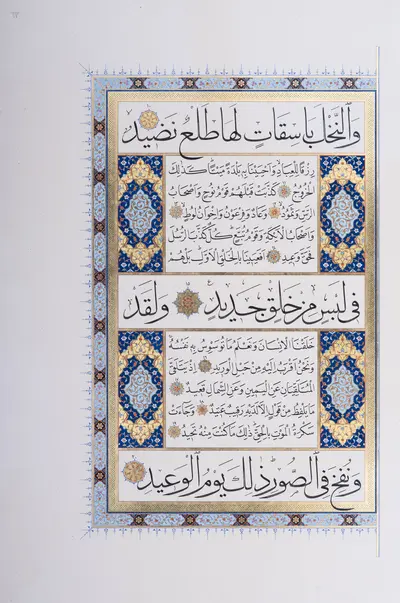 وَالنَّخْلَ بَاسِقَاتٍ لَهَا طَلْعٌ نَضِيدٌ
رِزْقًا لِلْعِبَادِ وَأَحْيَيْنَا بِهِ بَلْدَةً مَيْتًا كَذَلِكَ
الْخُرُوجُ كَذَّبَتْ قَبْلَهُمْ قَوْمُ نُوحٍ وَأَصْحَابُ
الرَّسِّ وَثَمُودُ وَعَادٌ وَفِرْعَوْنُ وَإِخْوَانُ لُوطٍ
وَأَصْحَابُ الْأَيْكَةِ وَقَوْمُ تُبَّعٍ كُلٌّ كَذَّبَ الرُّسُلَ
فَحَقَّ وَعِيدِ أَفَعَيِينَا بِالْخَلْقِ الْأَوَّلِ بَلْ هُمْ
فِي لَبْسٍ مِنْ خَلْقٍ جَدِيدٍ وَلَقَدْ
خَلَقْنَا الْإِنْسَانَ وَنَعْلَمُ مَا تُوَسْوِسُ بِهِ نَفْسُهُ
وَنَحْنُ أَقْرَبُ إِلَيْهِ مِنْ حَبْلِ الْوَرِيدِ إِذْ يَتَلَقَّى
الْمُتَلَقِّيَانِ عَنِ الْيَمِينِ وَعَنِ الشِّمَالِ قَعِيدٌ
مَا يَلْفِظُ مِنْ قَوْلٍ إِلَّا لَدَيْهِ رَقِيبٌ عَتِيدٌ وَجَاءَتْ
سَكْرَةُ الْمَوْتِ بِالْحَقِّ ذَلِكَ مَا كُنْتَ مِنْهُ تَحِيدُ
وَنُفِخَ فِي الصُّورِ ذَلِكَ يَوْمُ الْوَعِيدِ